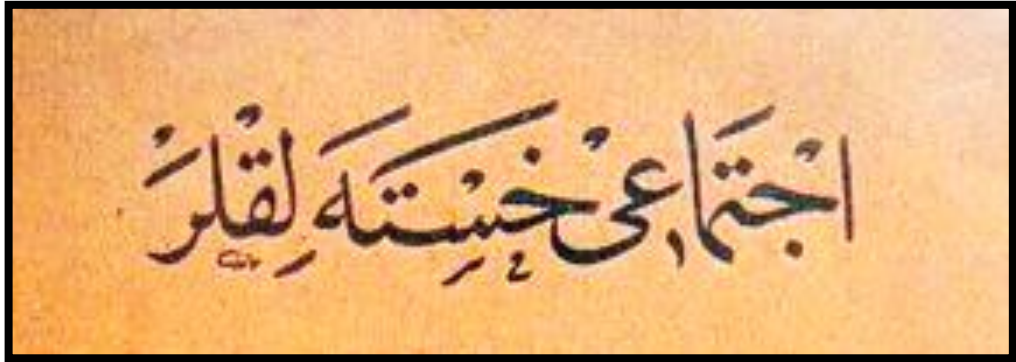 اجْتَماعىْ خَسْتَه لِقْلَرْ